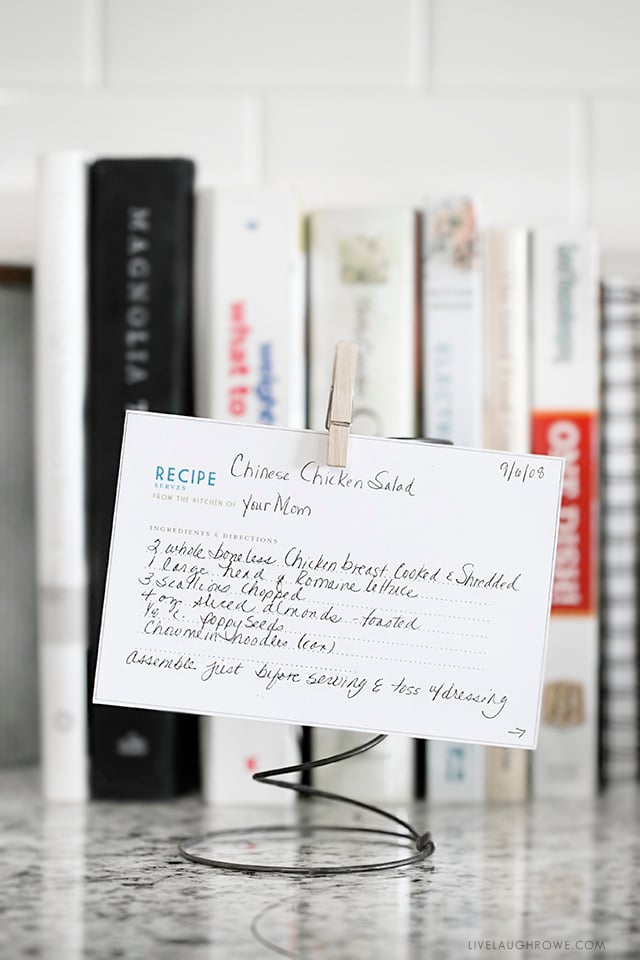 MAGNOLIA T
what to
weight
ELECTR
ONE DISH!
RECIPE Chinese Chicken Salad 9/6/08
SERVES
FROM THE KITCHEN OF Your Mom
INGREDIENTS & DIRECTIONS
2 whole boneless Chicken breast Cooked & Shredded
1 large head of Romaine lettuce
3 scallions chopped
4 oz sliced almonds - toasted
c. poppy seeds
Chowmein noodles (can)
Assemble just before serving & toss w/dressing
→
LIVELAUGHROWE.COM